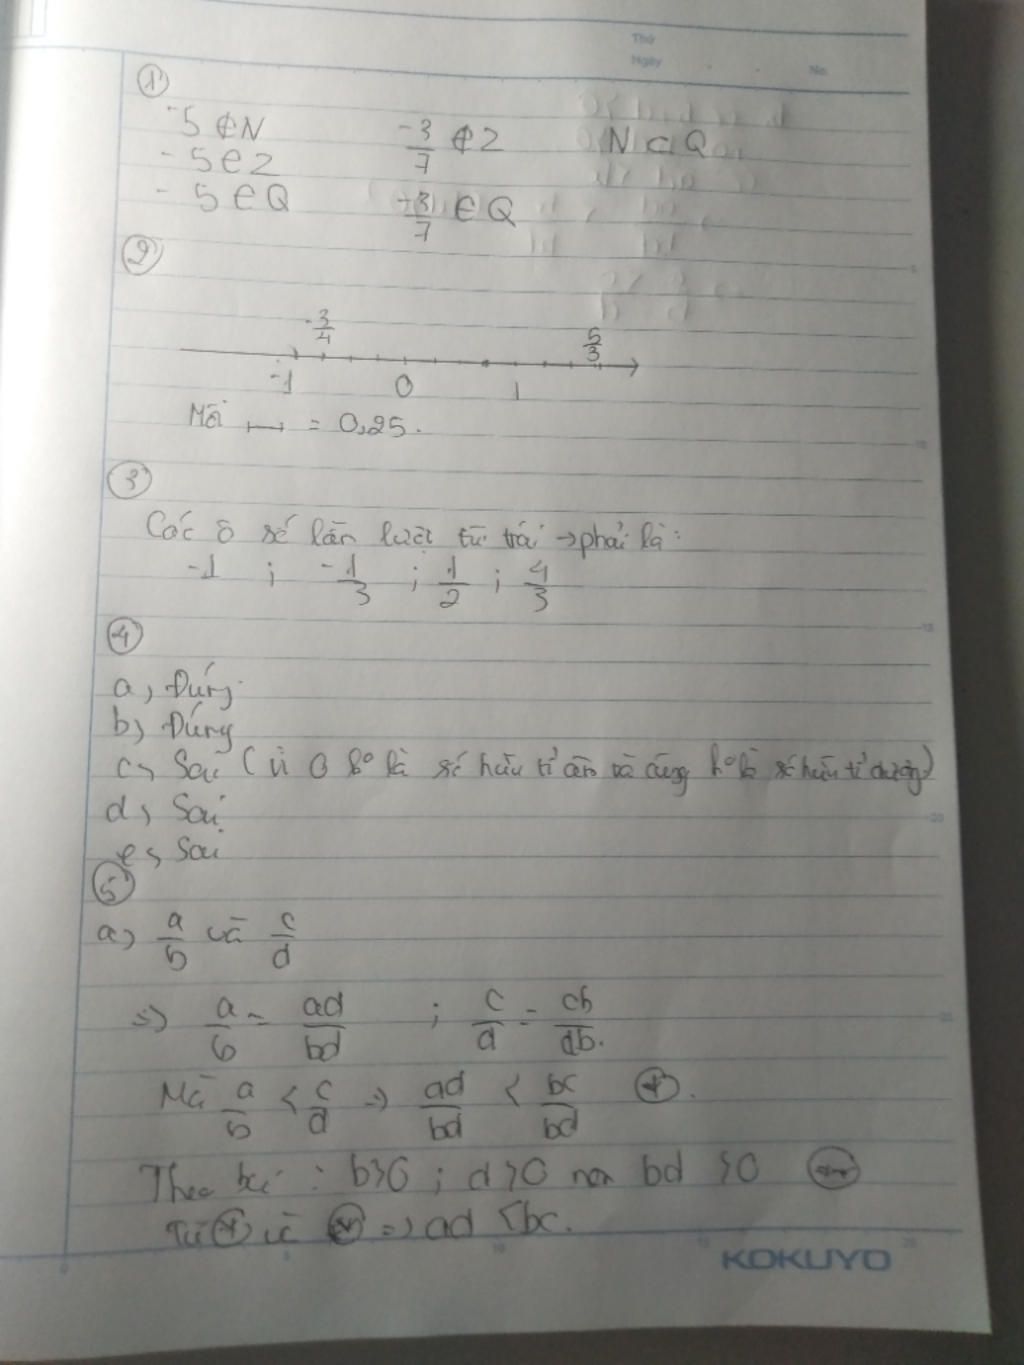 Thứ
Ngày
No.
①
-5 ∉ N    -3/7 ∉ Z    N ⊂ Q
-5 ∈ Z
-5 ∈ Q    -3/7 ∈ Q
②
-3/4    5/3
-1    0    1
Mỗi ⊢⊣ = 0,25.
③
Các ô số lần lượt từ trái → phải là:
-1 ; -1/3 ; 1/2 ; 4/3
④
a, Đúng
b, Đúng
c, Sai (vì 0 ko là số hữu tỉ âm và cũng ko là số hữu tỉ dương)
d, Sai
e, Sai
⑤
a) a/b và c/d
=> a/b = ad/bd ; c/d = cb/db.
Mà a/b < c/d => ad/bd < bc/bd (*).
Theo bài : b>0 ; d>0 nên bd >0 (**)
Từ (*) và (**) => ad <bc.
KOKUYO